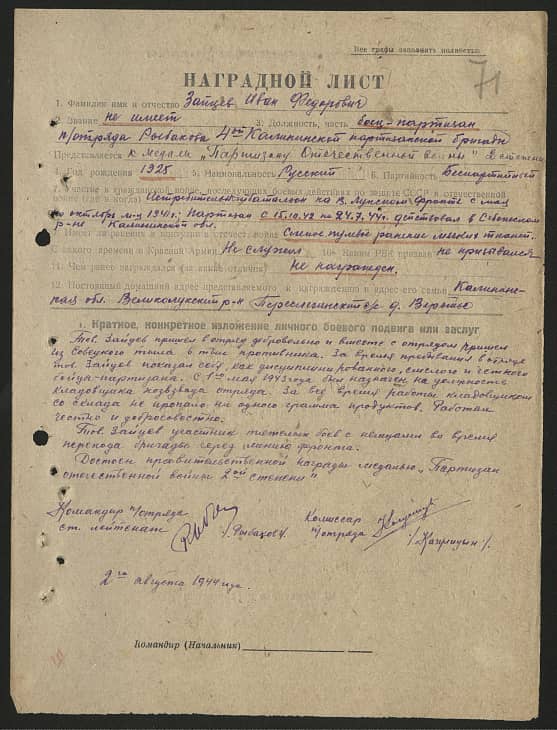 Все графы заполнить полностью
71
НАГРАДНОЙ ЛИСТ
1. Фамилия имя и отчество Зайцев Иван Федорович
2. Звание не имеет 3. Должность, часть боец-партизан
п/отряда Рыбакова 4ой Калининской партизанской бригады
Представляется к медали „Партизану Отечественной войны" 2 степени
4. Год рождения 1925 5. Национальность Русский 6. Партийность Беспартийный
7. Участие в гражданской войне, последующих боевых действиях по защите СССР и отечественной
войне (где и когда) Истребительном батальоне на В. Лукском фронте с мая
по октябрь м-ц 1941г. Партизан с 15.10.42 по 24.7.44г. действовал в
р-не Калининской обл.
ранения в отечественной войне Слепое пулевое ранение мягких тканей.
С какого времени в Красной Армии Не служил 10. Каким РВК призван не призывался
11. Чем ранее награждался (за какие отличия) Не награжден.
12. Постоянный домашний адрес представляемого к награждению и адрес его семьи Калининс-
кая обл. Великолукский р-н с/с д.
1. Краткое, конкретное изложение личного боевого подвига или заслуг
Тов. Зайцев пришел в отряд добровольно и вместе с отрядом пришел
из Советского тыла в тыл противника. За время пребывания в отряде
тов. Зайцев показал себя как дисциплинированного, смелого и честного
бойца-партизана. С 1го мая 1943 года был назначен на должность
кладовщика хозвзвода отряда. За всё время работы кладовщиком
со склада не пропало ни одного грамма продуктов. Работал
честно и добросовестно.
Тов. Зайцев участник тяжелых боев с немцами во время
перехода бригады через линию фронта.
Достоен правительственной награды медалью „Партизан
отечественной войны 2ой степени"
Командир п/отряда
ст. лейтенант /Рыбаков/.
Комиссар
п/отряда
2го августа 1944 года.
Командир (Начальник)